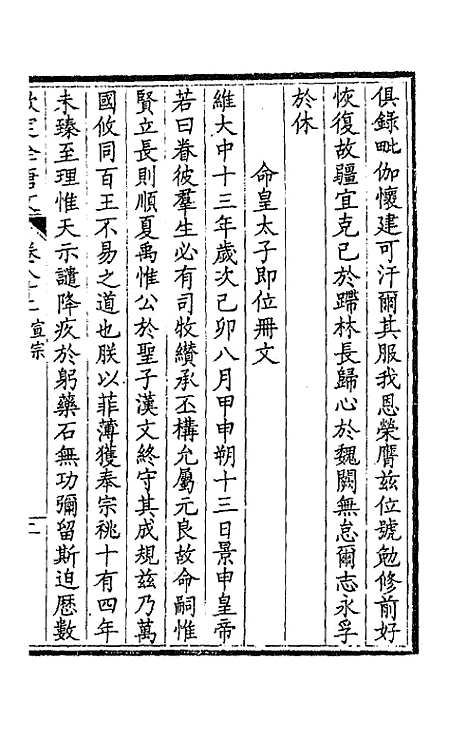 俱錄毗伽懷建可汗爾其服我恩榮膺茲位號勉修前好
恢復故疆宜克已於蹛林長歸心於魏闕無怠爾志永孚
於休
命皇太子即位冊文
維大中十三年歲次己卯八月甲申朔十三日景申皇帝
若曰眷彼羣生必有司牧纘承丕構允屬元良故命嗣惟
賢立長則順夏禹惟公於聖子漢文終守其成規茲乃萬
國攸同百王不易之道也朕以菲薄獲奉宗祧十有四年
未臻至理惟天示譴降疚於躬藥石無功彌留斯迫歷數
欽定全唐文 卷八十一 宣宗